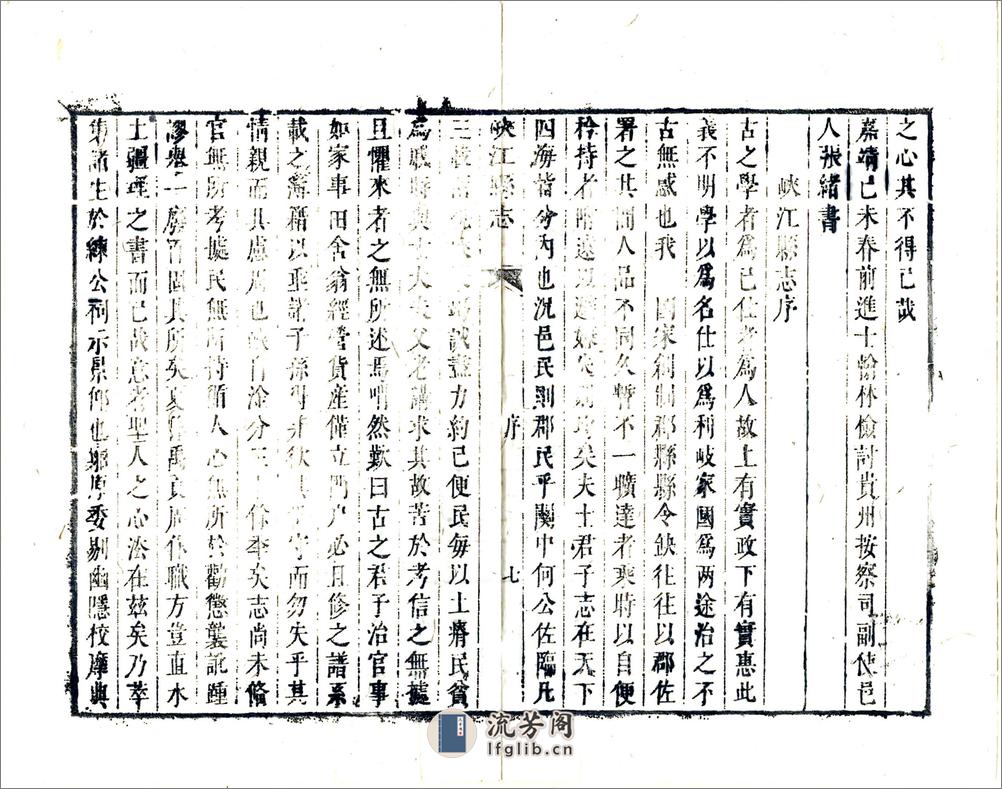 之心其不得已哉
嘉靖己未春前進士翰林檢討貴州按察司副使邑
人張緒書
峽江縣志序
古之學者為己仕者為人故上有實政下有實惠此
義不明學以為名仕以為利岐家國為两途治之不
古無感也我 國家剏制郡縣縣令缺往往以郡佐
署之其間人品不同久暫不一曠達者乘時以自便
矜持者矣夫士君子志在天下
四海皆分內也況邑民則郡民乎閩中何公佐臨凡
峽江縣志
序
七
三誠盡力約己便民每以土瘠民貧
為時與士大夫父老講求其故苦於考信之無據
且懼來者之無所述焉喟然歎曰古之君子治官事
如家事田舍翁經營貨產僅立門户必且修之譜系
載之簿籍以垂諸子孫而勿失乎其
情親而其慮周也峽自淦分三十餘季矣志尚未脩
官無所考據民無所持循人心無所於勸懲襲訛踵
謬一而固其所矣夏僃禹貢周作職方豈直水
土疆理之書而已哉意者聖人之心法在茲矣乃萃
集諸生於練公祠示景仰也委剔幽隱校摩典
流芳阁
lfglib.cn